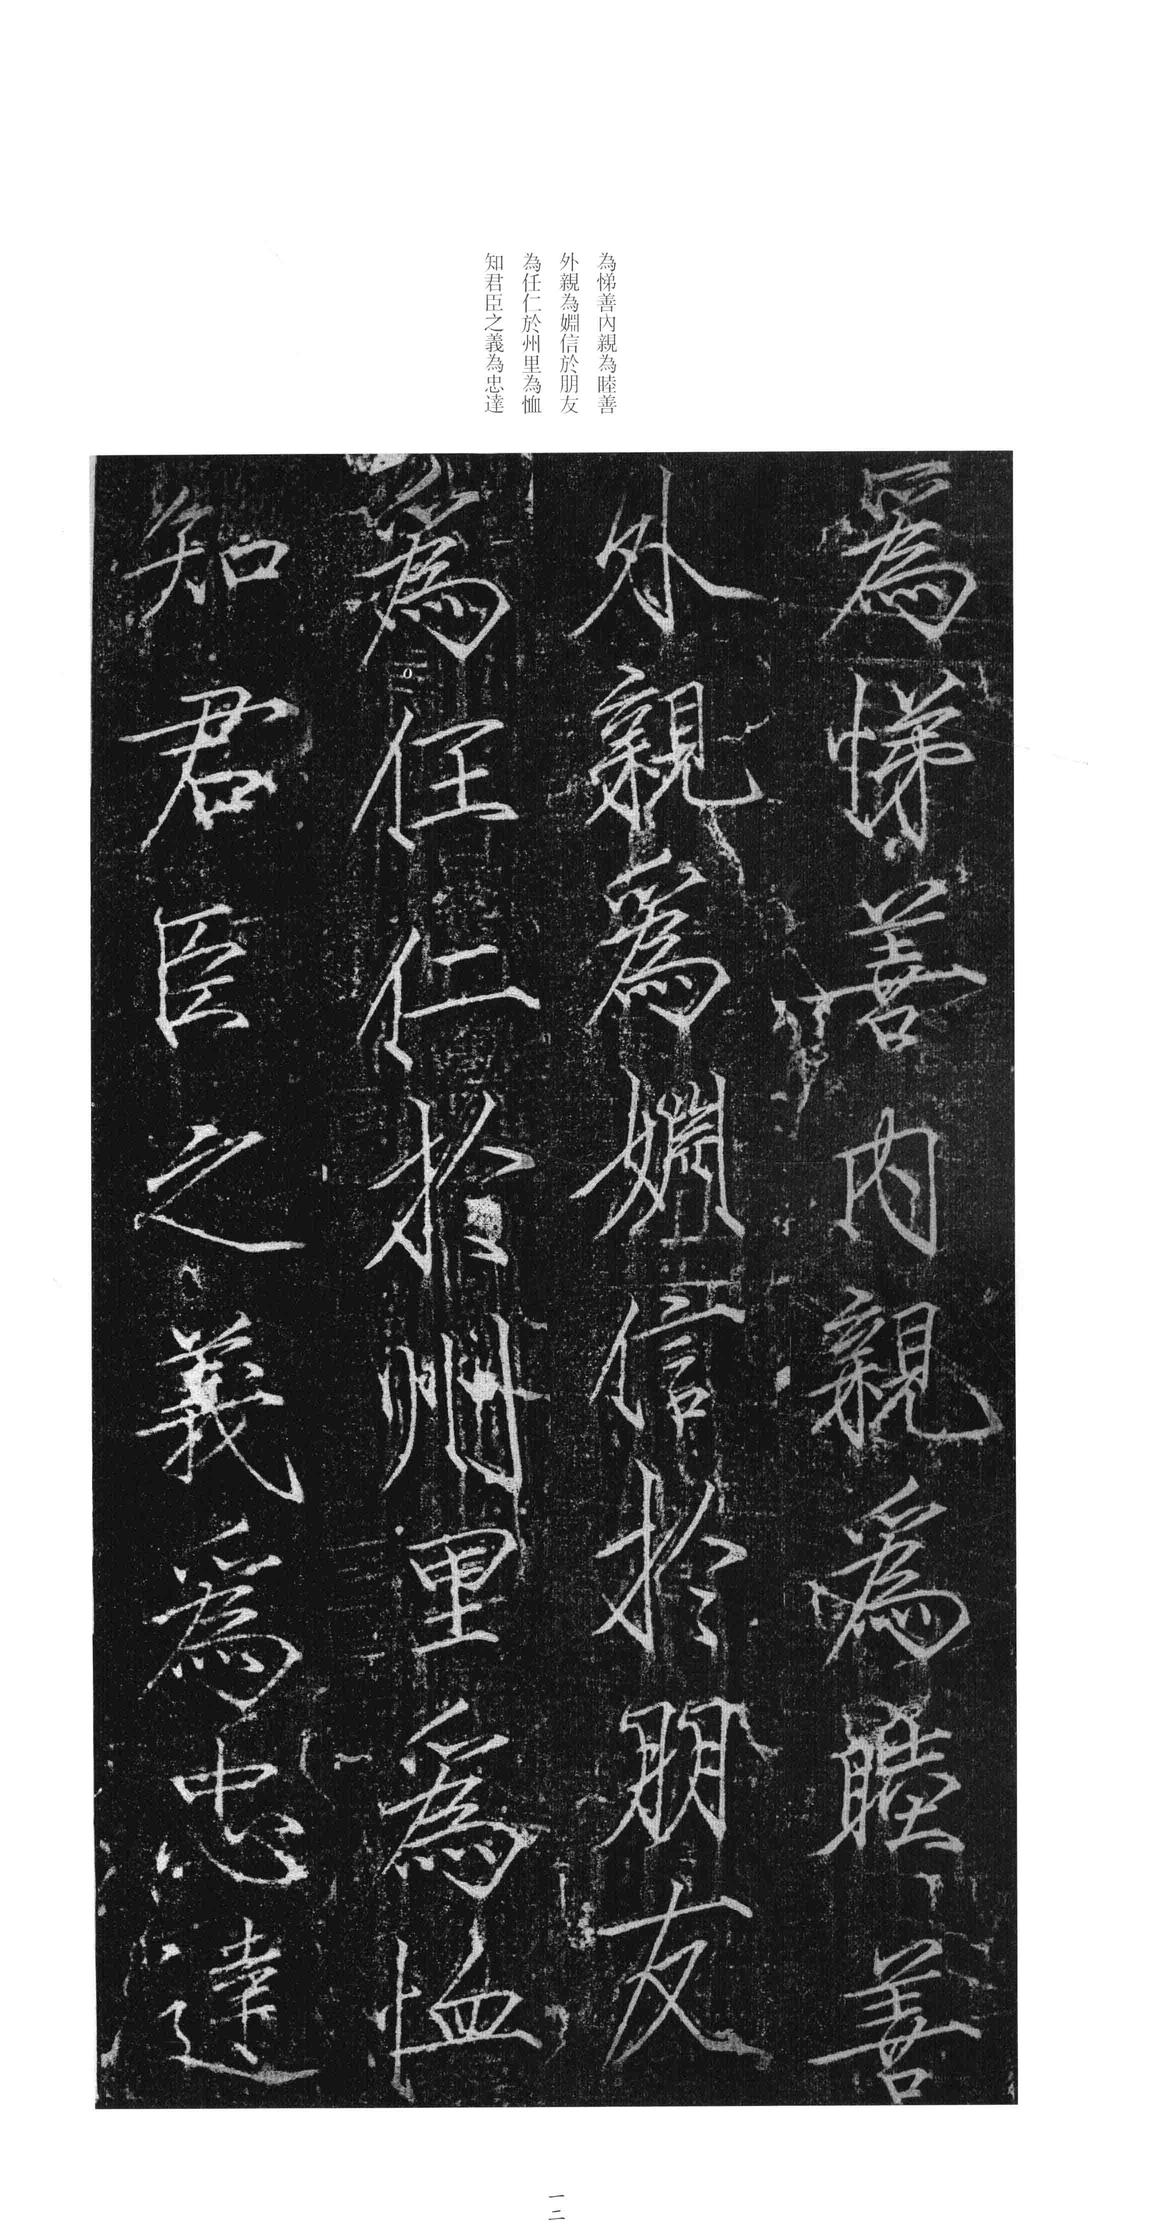 為悌善內親為睦善
外親為婣信於朋友
為任仁於州里為恤
知君臣之義為忠達
為悌善内親為睦善
外親為婣信於朋友
為任仁於州里為恤
知君臣之義為忠達
一二